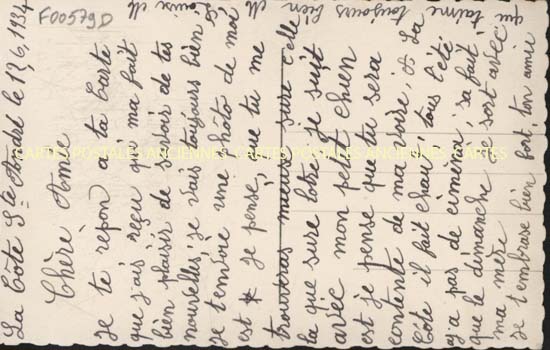 La Côte St André le 17, 6, 1934
Chère Amie
je te répon a ta Carte
que j'ais reçu qui ma fait
bien plaisir de savoir de tes
nouvelles; je vais toujours bien
je t'envoie une photo de moi
est je pensé, que tu me
trouveras mieus sure celle
la que sure lotre je suit
avec mon petit chien
est je pense que tu sera
contente de ma voire, A La
Côte il fait chaud tous l'été
n'y a pas de ciméma, sa fait
que le démanche je sort avéc
ma mère
je t'embrase bien fort, ton amie
qui t'aime toujours bien
Louise
F00579D
CARTES POSTALES ANCIENNES
CARTES POSTALES ANCIENNES